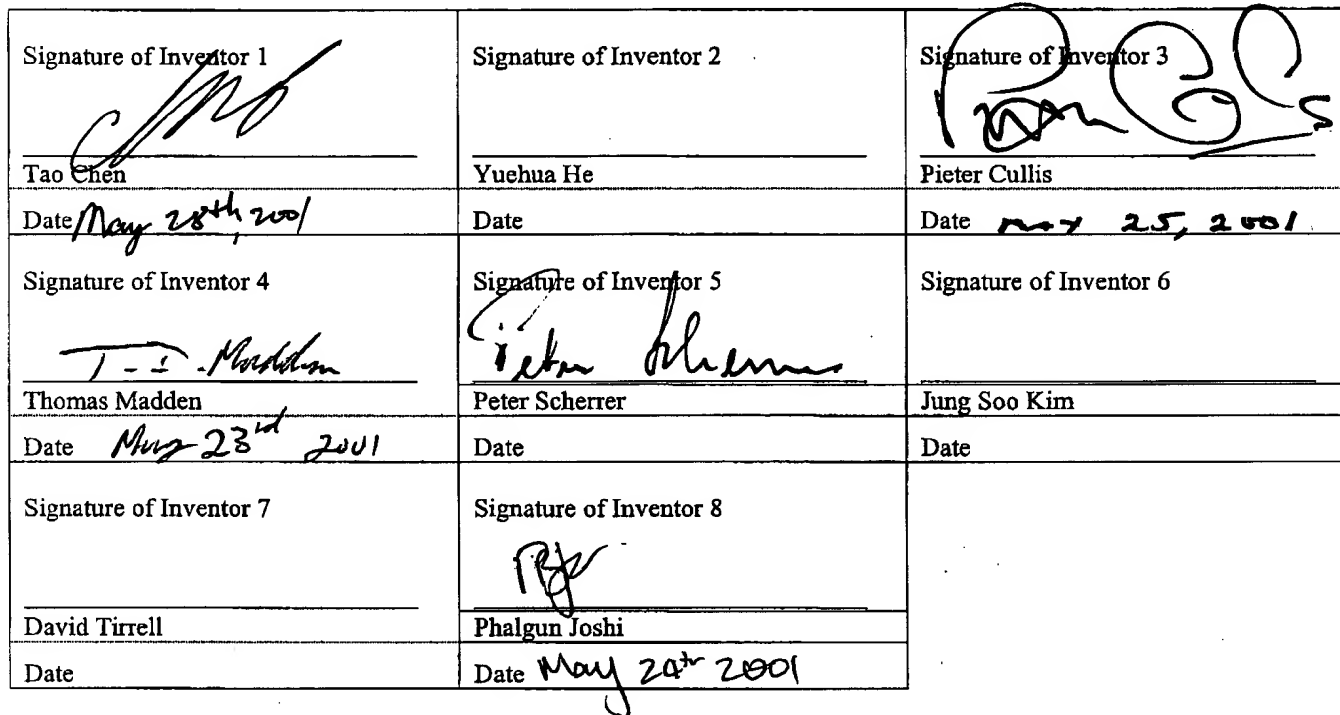 Signature of Inventor 1 Signature of Inventor 2 Signature of Inventor 3
Tao Chen Yuehua He Pieter Cullis
Date May 28th, 2001 Date Date May 25, 2001
Signature of Inventor 4 Signature of Inventor 5 Signature of Inventor 6
T. D. Madden Peter Scherrer
Thomas Madden Peter Scherrer Jung Soo Kim
Date May 23rd 2001 Date Date
Signature of Inventor 7 Signature of Inventor 8
David Tirrell Phalgun Joshi
Date Date May 24th 2001